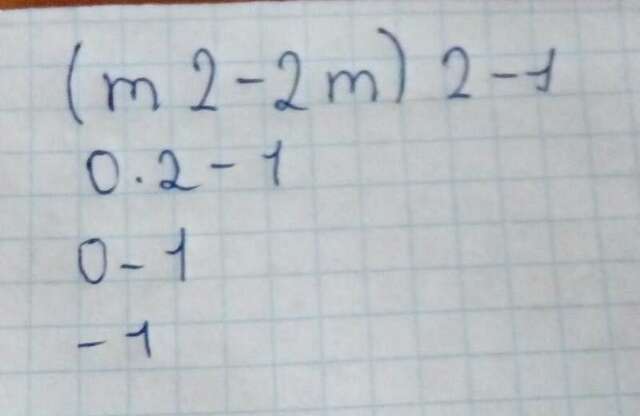 (m 2 - 2 m) 2 - 1
0 . 2 - 1
0 - 1
- 1